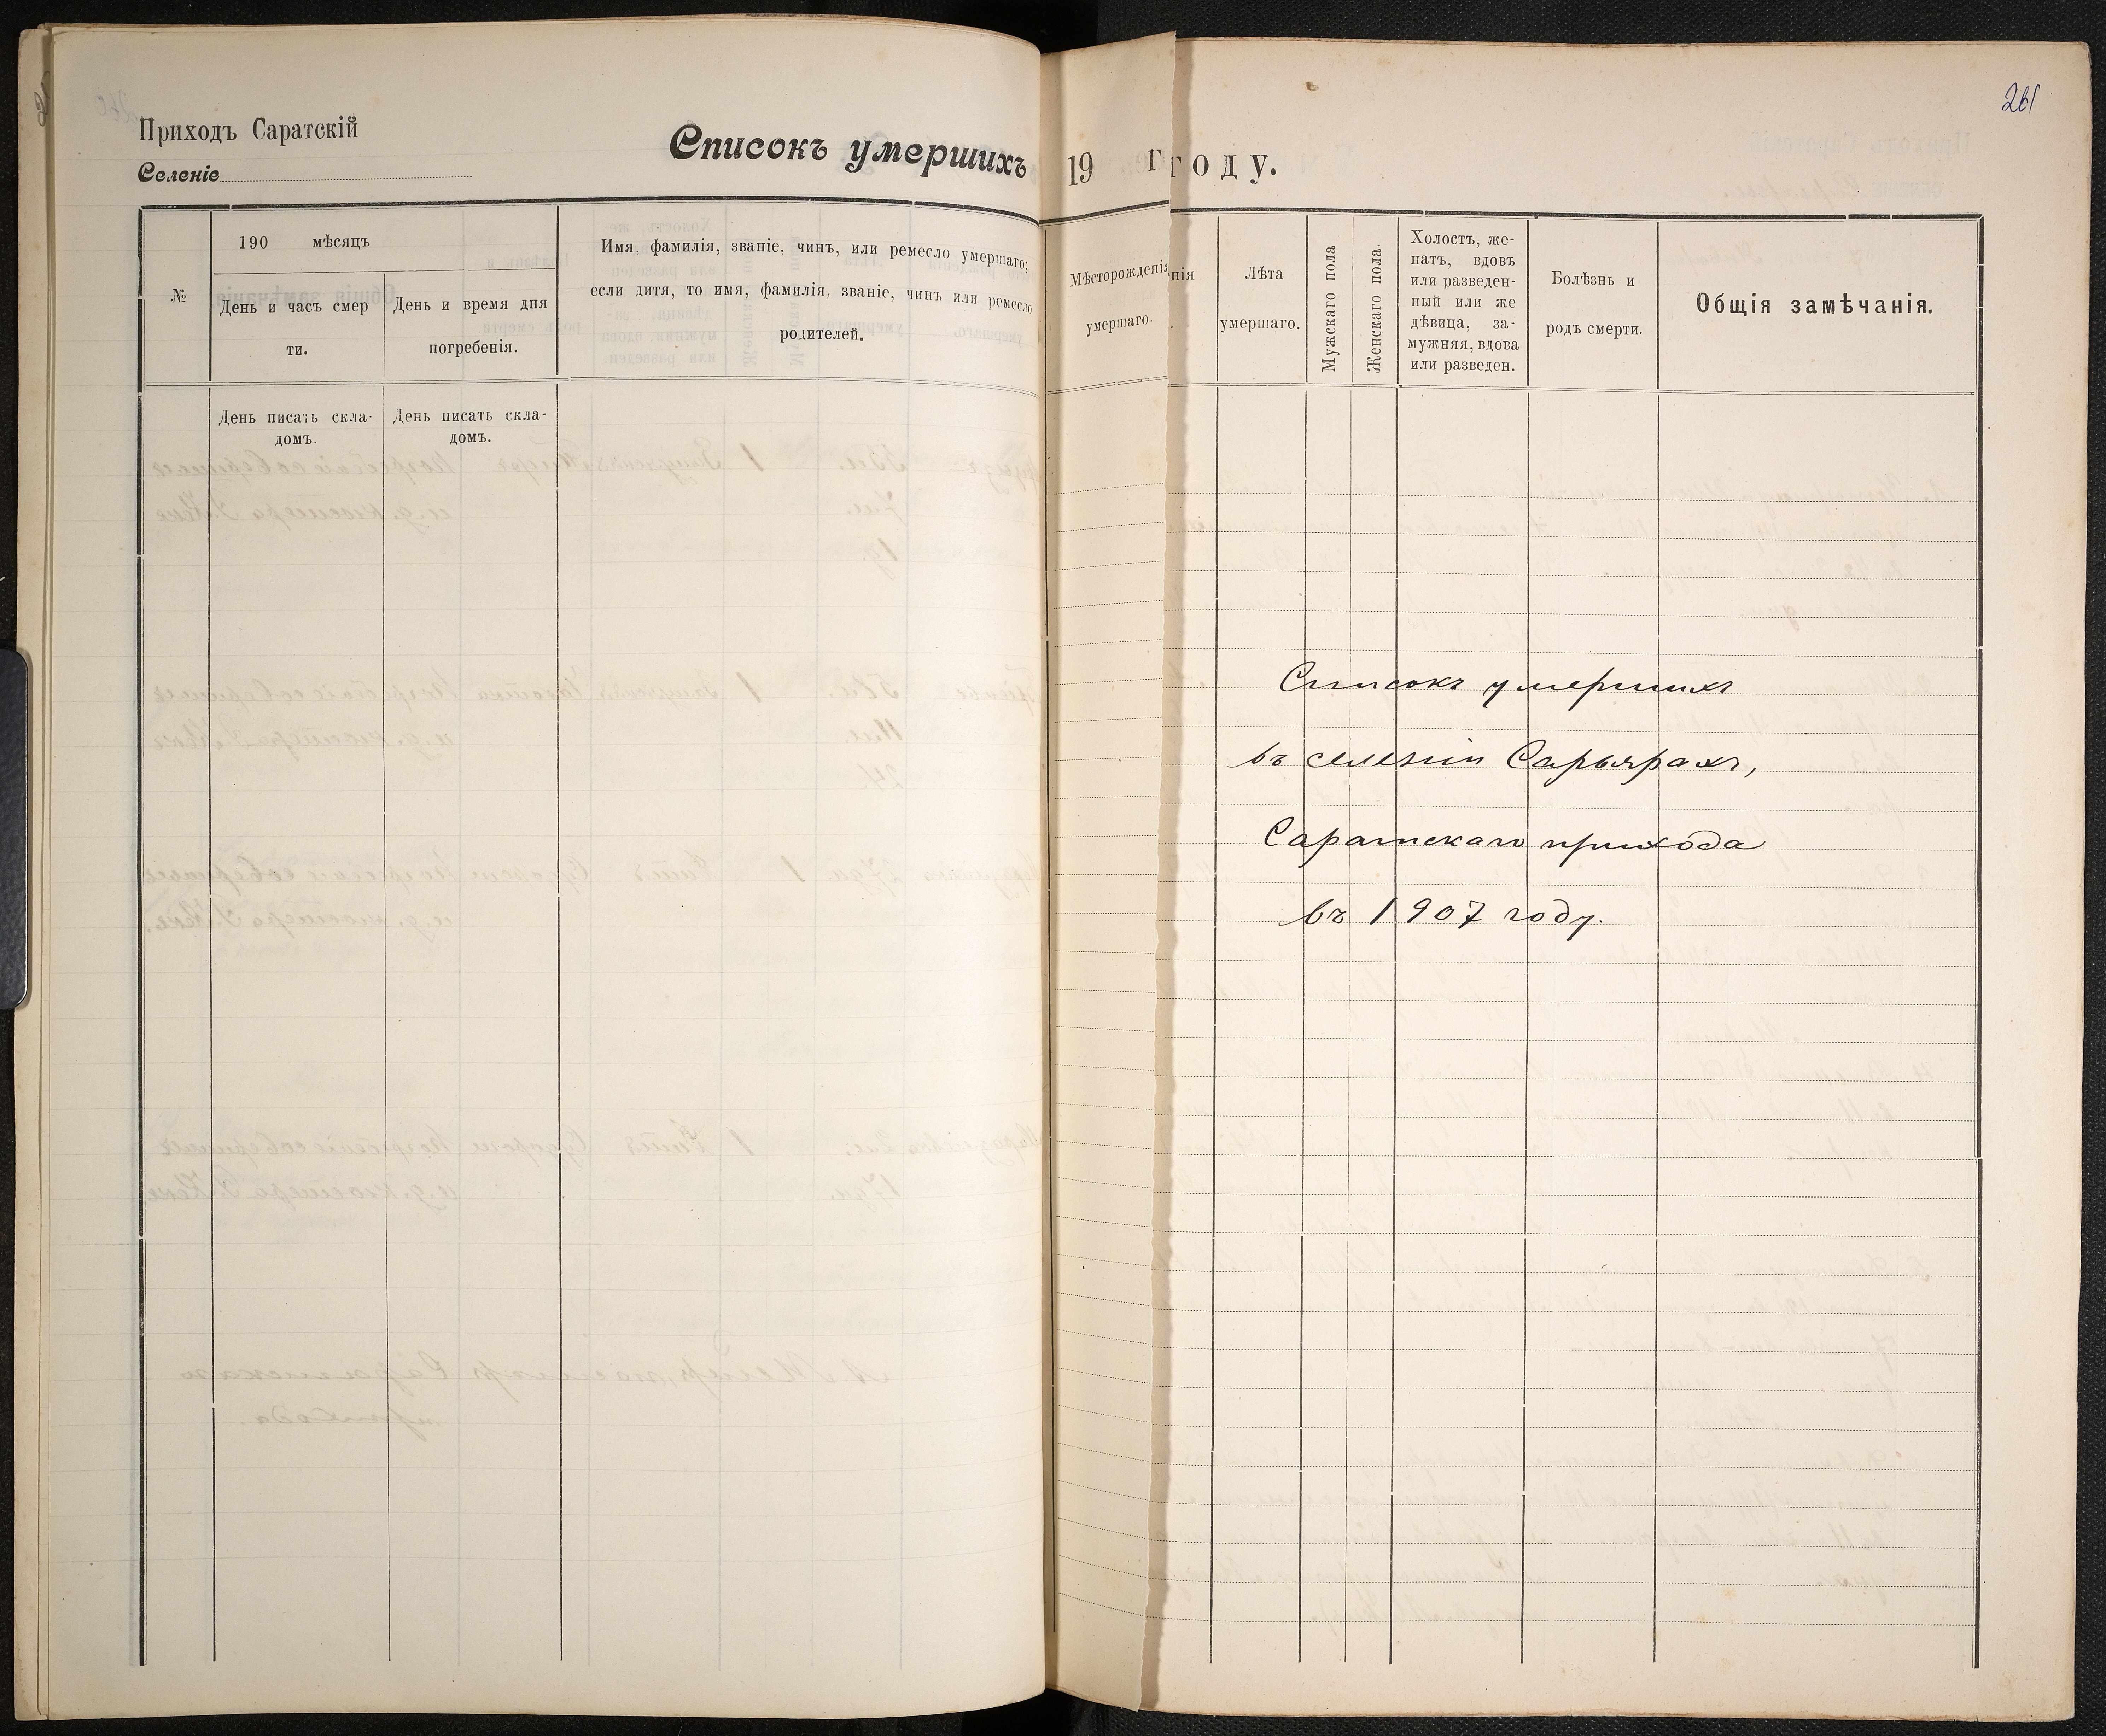 261
Приходъ Саратскій
Селеніе
Списокъ умершихъ
19
г
году.
№
190 мѣсяцъ
День и часъ смер
ти.
День и время дня
погребенія.
Имя, фамилія, званіе, чинъ, или ремесло умершаго;
если дитя, то имя, фамилія, званіе, чинъ или ремесло
родителей.
Мѣсторожденія
умершаго.
нія
Лѣта
умершаго.
Мужскаго пола
Женскаго пола.
Холостъ, же-
натъ, вдовъ
или разведен-
ный или же
дѣвица, за-
мужняя, вдова
или разведен.
Болѣзнь и
родъ смерти.
Общія замѣчанія.
День писать скла-
домъ.
День писать скла-
домъ.
Списокъ умершихъ
въ селеніи Сарьярахъ,
Саратскаго прихода
въ 1907 году.